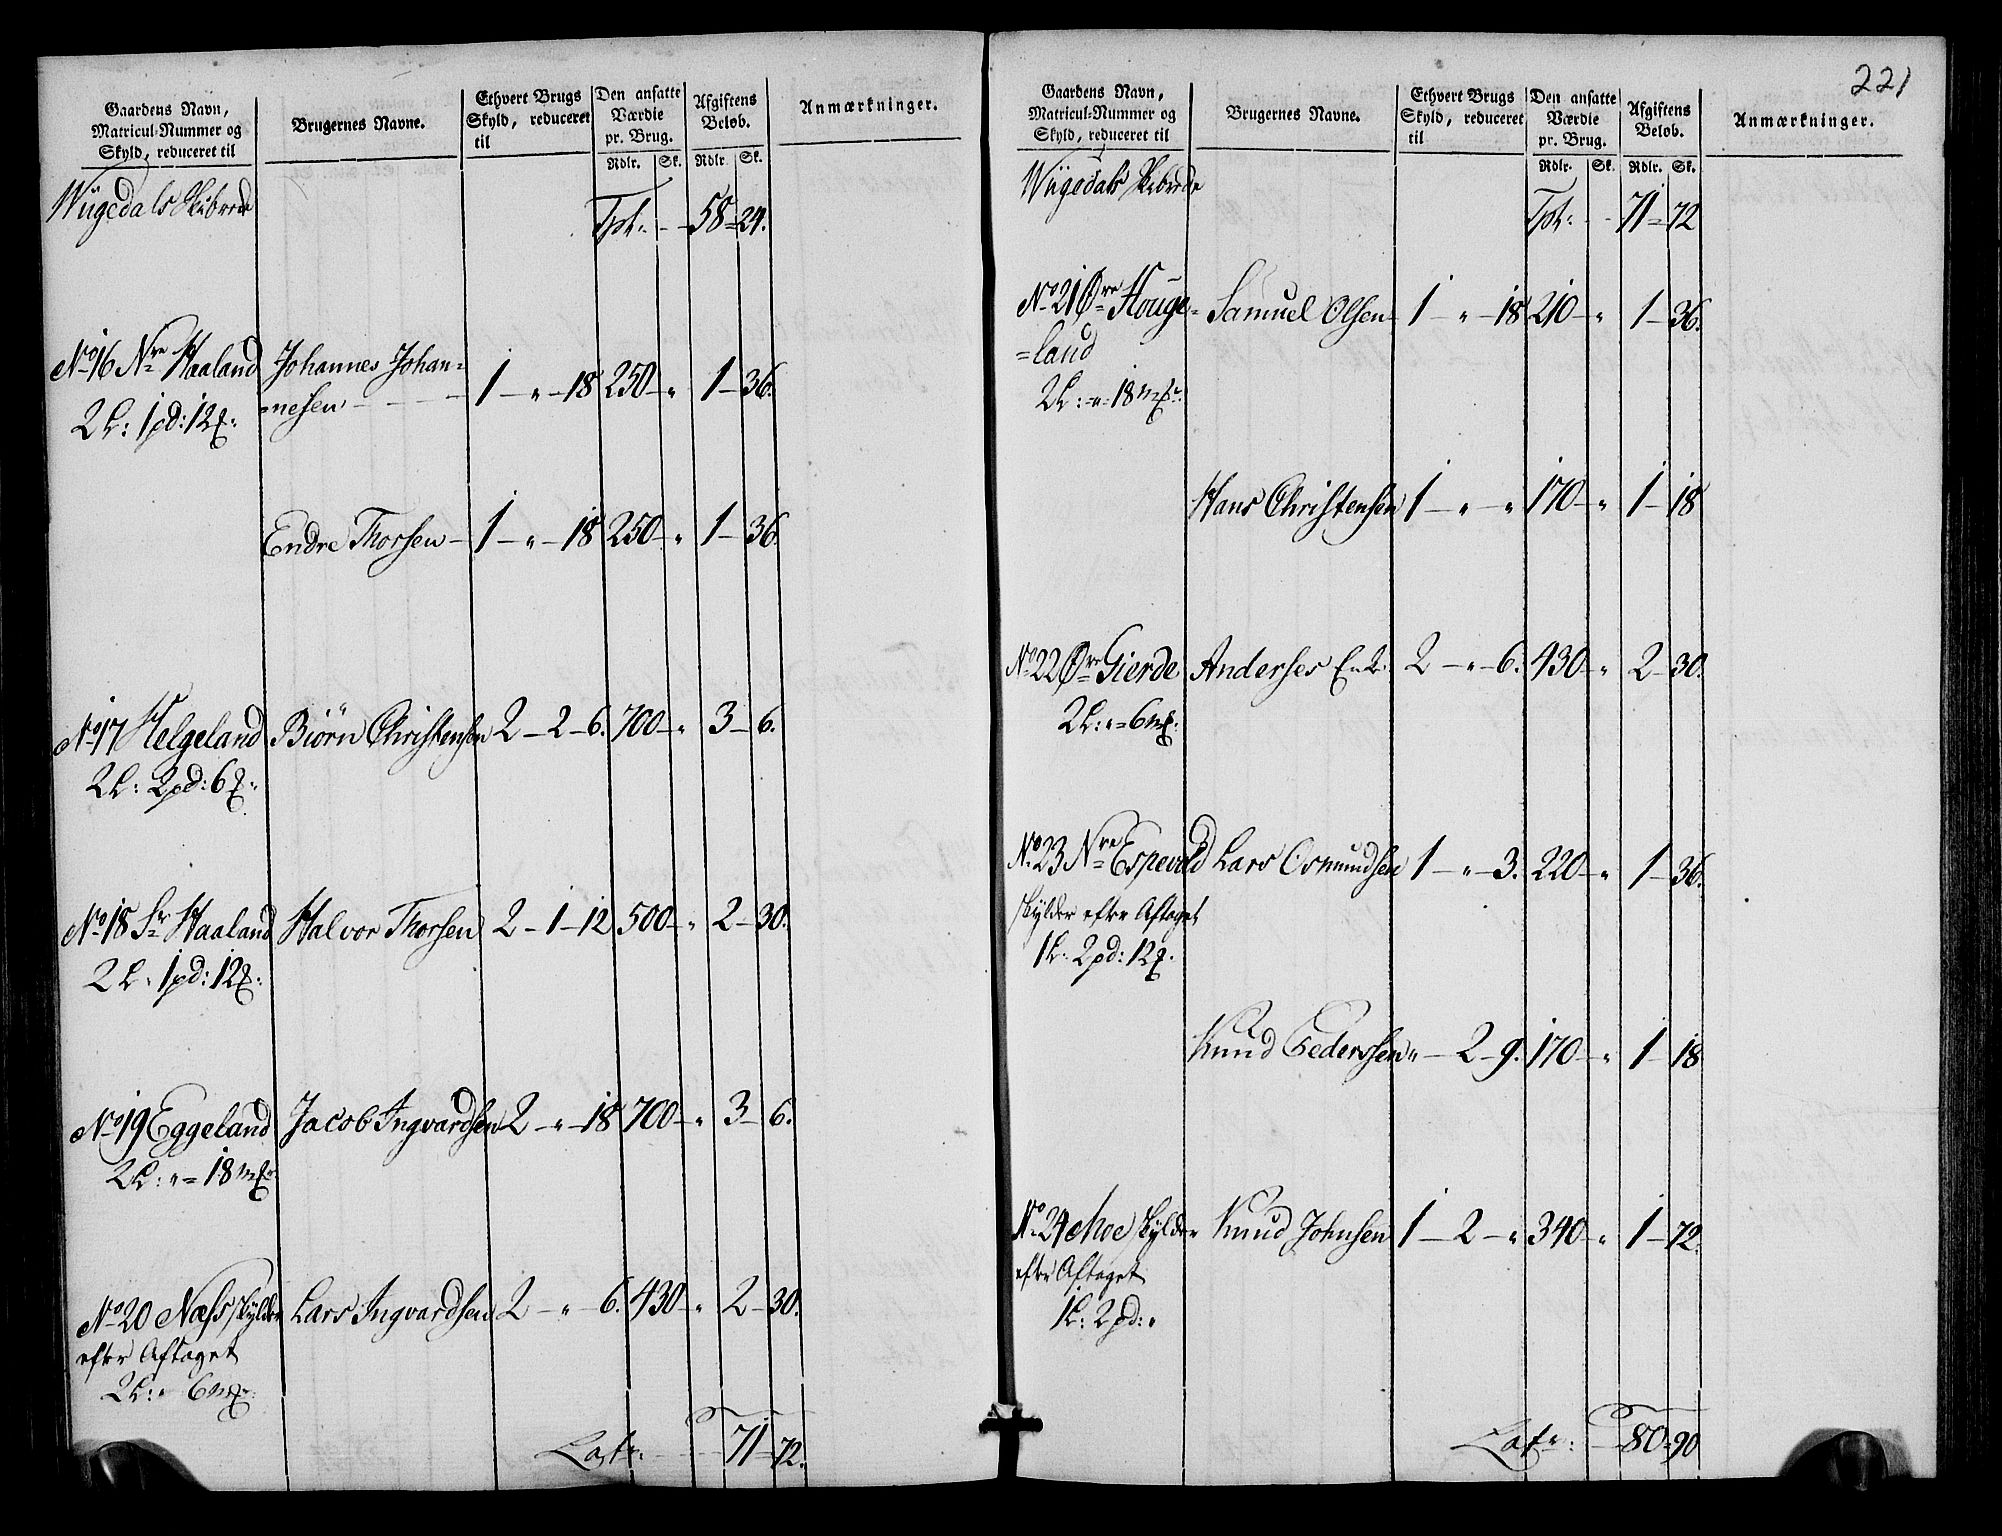 Gaardens Navn,
Matricul-Nummer og
Skyld, reduceret til
Brugernes Navne.
Ethvert Brugs
Skyld, reduceret
til
Den ansatte
Værdie
pr. Brug.
Rdlr. Sk.
Afgiftens
Beløb.
Rdlr. Sk.
Anmærkninger.
Wügedals Skibrede
Tpt: - - 58 = 24.
No 16 Nre Haaland Johannes Johan= 1 - " - 18 250 - " 1 - 36.
=nesen
2 L: 1 pd: 12 
Endre Thorsen - 1 - " - 18 250 - " 1 - 36.
No 17 Helgeland Biørn Christensen 2 - 2 - 6. 700 - " 3 - 6.
2 L: 2 pd: 6 
No 18 Sr Haaland Halvor Thorsen 2 - 1 - 12 500 - " 2 - 30.
2 L: 1 pd: 12 
No 19 Eggeland Jacob Ingvardsen 2 - " - 18 700 - " 3 - 6.
2 L: " = 18 m
No 20 Næss skylder Lars Ingvardsen 2 - " 6. 430 - " 2 - 30.
efter Aftaget
2 L: " 6 m
Latr: 71 - 72.
221
Gaardens Navn,
Matricul-Nummer og
Skyld, reduceret til
Brugernes Navne.
Ethvert Brugs
Skyld, reduceret
til
Den ansatte
Værdie
pr. Brug.
Rdlr. Sk.
Afgiftens
Beløb.
Rdlr. Sk.
Anmærkninger.
Wügedals Skibrede
Tpt: - - 71 = 72
No 21 Øre Houge= Samuel Olsen 1 - " - 18 210 - " 1 - 36.
=land
2 L: = " = 18 m
Hans Christensen 1 - " - " 170 - " 1 - 18
No 22 Øre Gierde Anderses Enke 2 - " - 6. 430 - " 2 - 30.
2 L: " = 6 m
No 23 Nre Espevold Lars Osmundsen 1 - " - 3. 220 - " 1 - 36.
skylder efter Aftaget
1 L: 2 pd: 12 
Knud Pedersen " - 2 - 9. 170 - " 1 - 18
No 24 Moe skylder Knud Johnsen 1 - 2 - " 340 - " 1 - 72.
efter Aftaget
1 L: 2 pd: "
Latr: 80 = 90